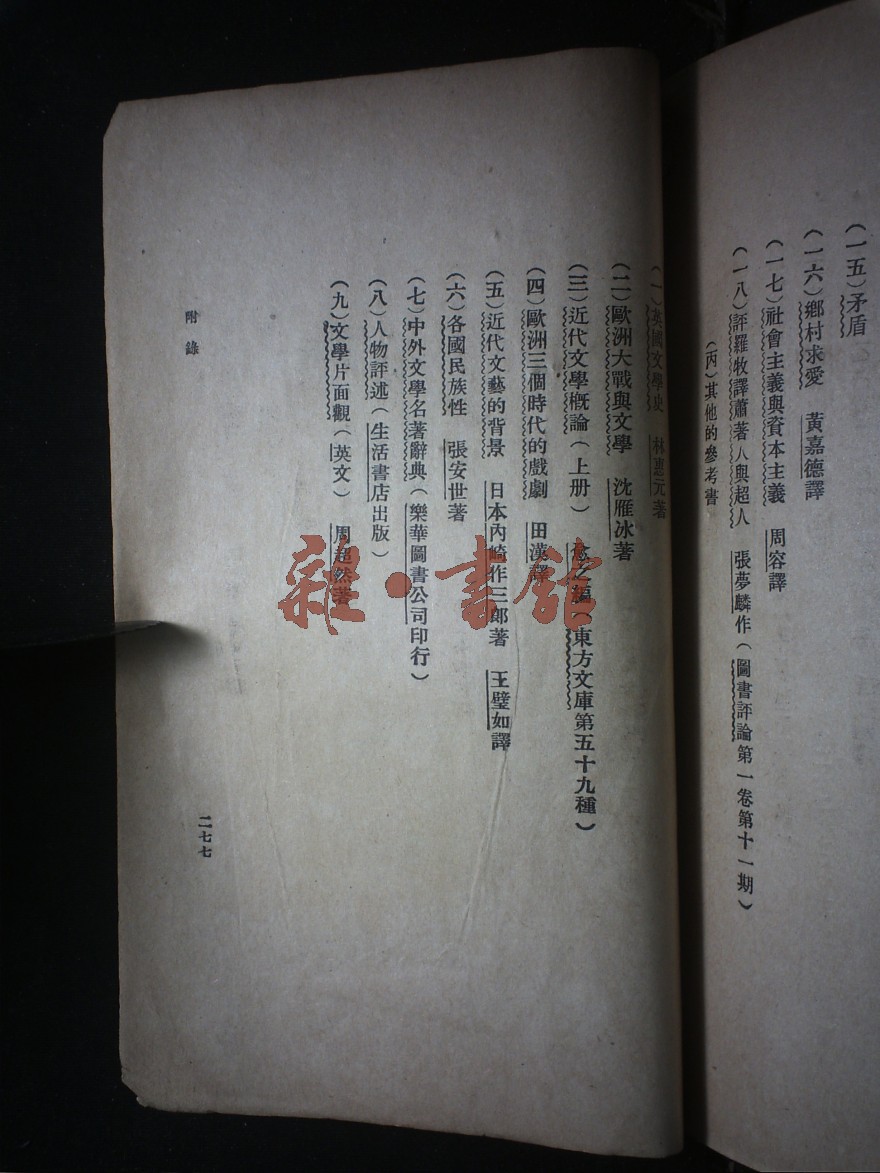 (一五)矛盾
(一六)鄉村求愛 黃嘉德譯
(一七)社會主義與資本主義 周容譯
(一八)評羅牧譯蕭著人與超人 張夢麟作(圖書評論第一卷第十一期)
(丙)其他的參考書
(一)英國文學史 林惠元著
(二)歐洲大戰與文學 沈雁冰著
(三)近代文學概論(上册) 愈之編(東方文庫第五十九種)
(四)歐洲三個時代的戲劇 田漢譯
(五)近代文藝的背景 日本內崎作三郎著 王璧如譯
(六)各國民族性 張安世著
(七)中外文學名著辭典(樂華圖書公司印行)
(八)人物評述(生活書店出版)
(九)文學片面觀(英文) 周超然著
附錄
二七七
雜·書館